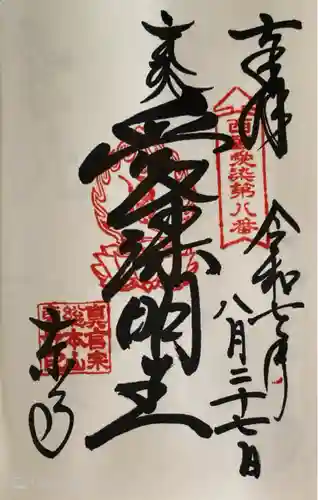 奉拝
西国愛染第八番
令和七年
八月二十七日
愛染明王
真言宗
総本山
東寺